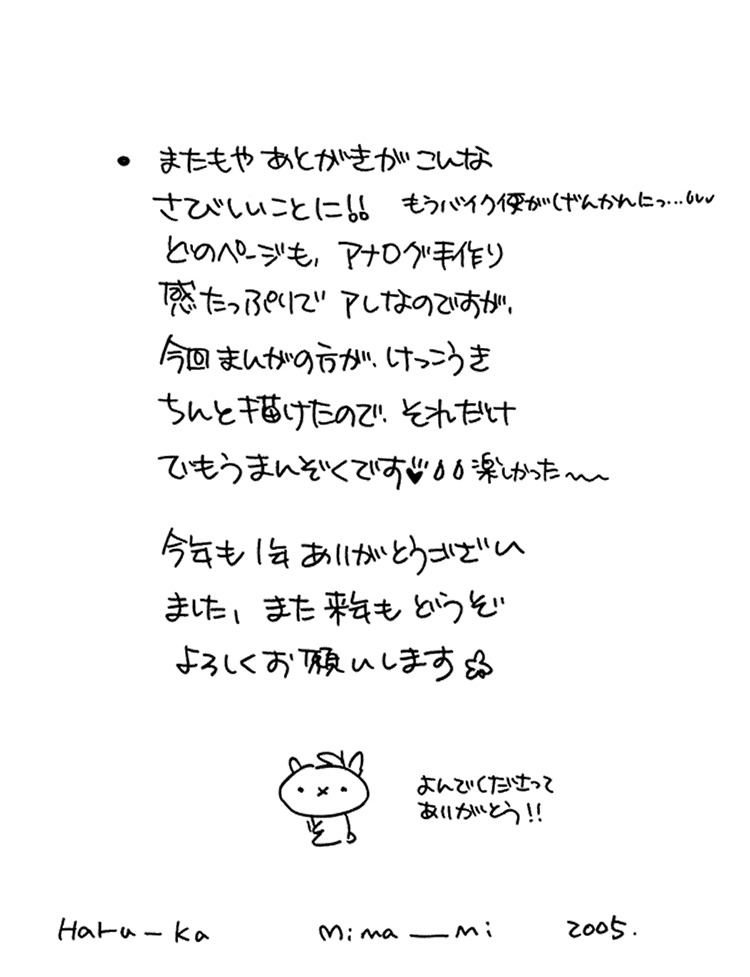 • またもや あとがきが こんな
さびしいことに!! もうバイク便がげんかいにっ…
どのページも、アナログ手作り
感たっぷりで アレなのですが、
今回まんがの方が、けっこうき
ちんと描けたので、それだけ
でもうまんぞくです♥ 楽しかった〜
今年も1年ありがとうござい
ました、また来年もどうぞ
よろしくお願いします
よんでくださって
ありがとう!!
Haru-ka Mina_mi 2005.